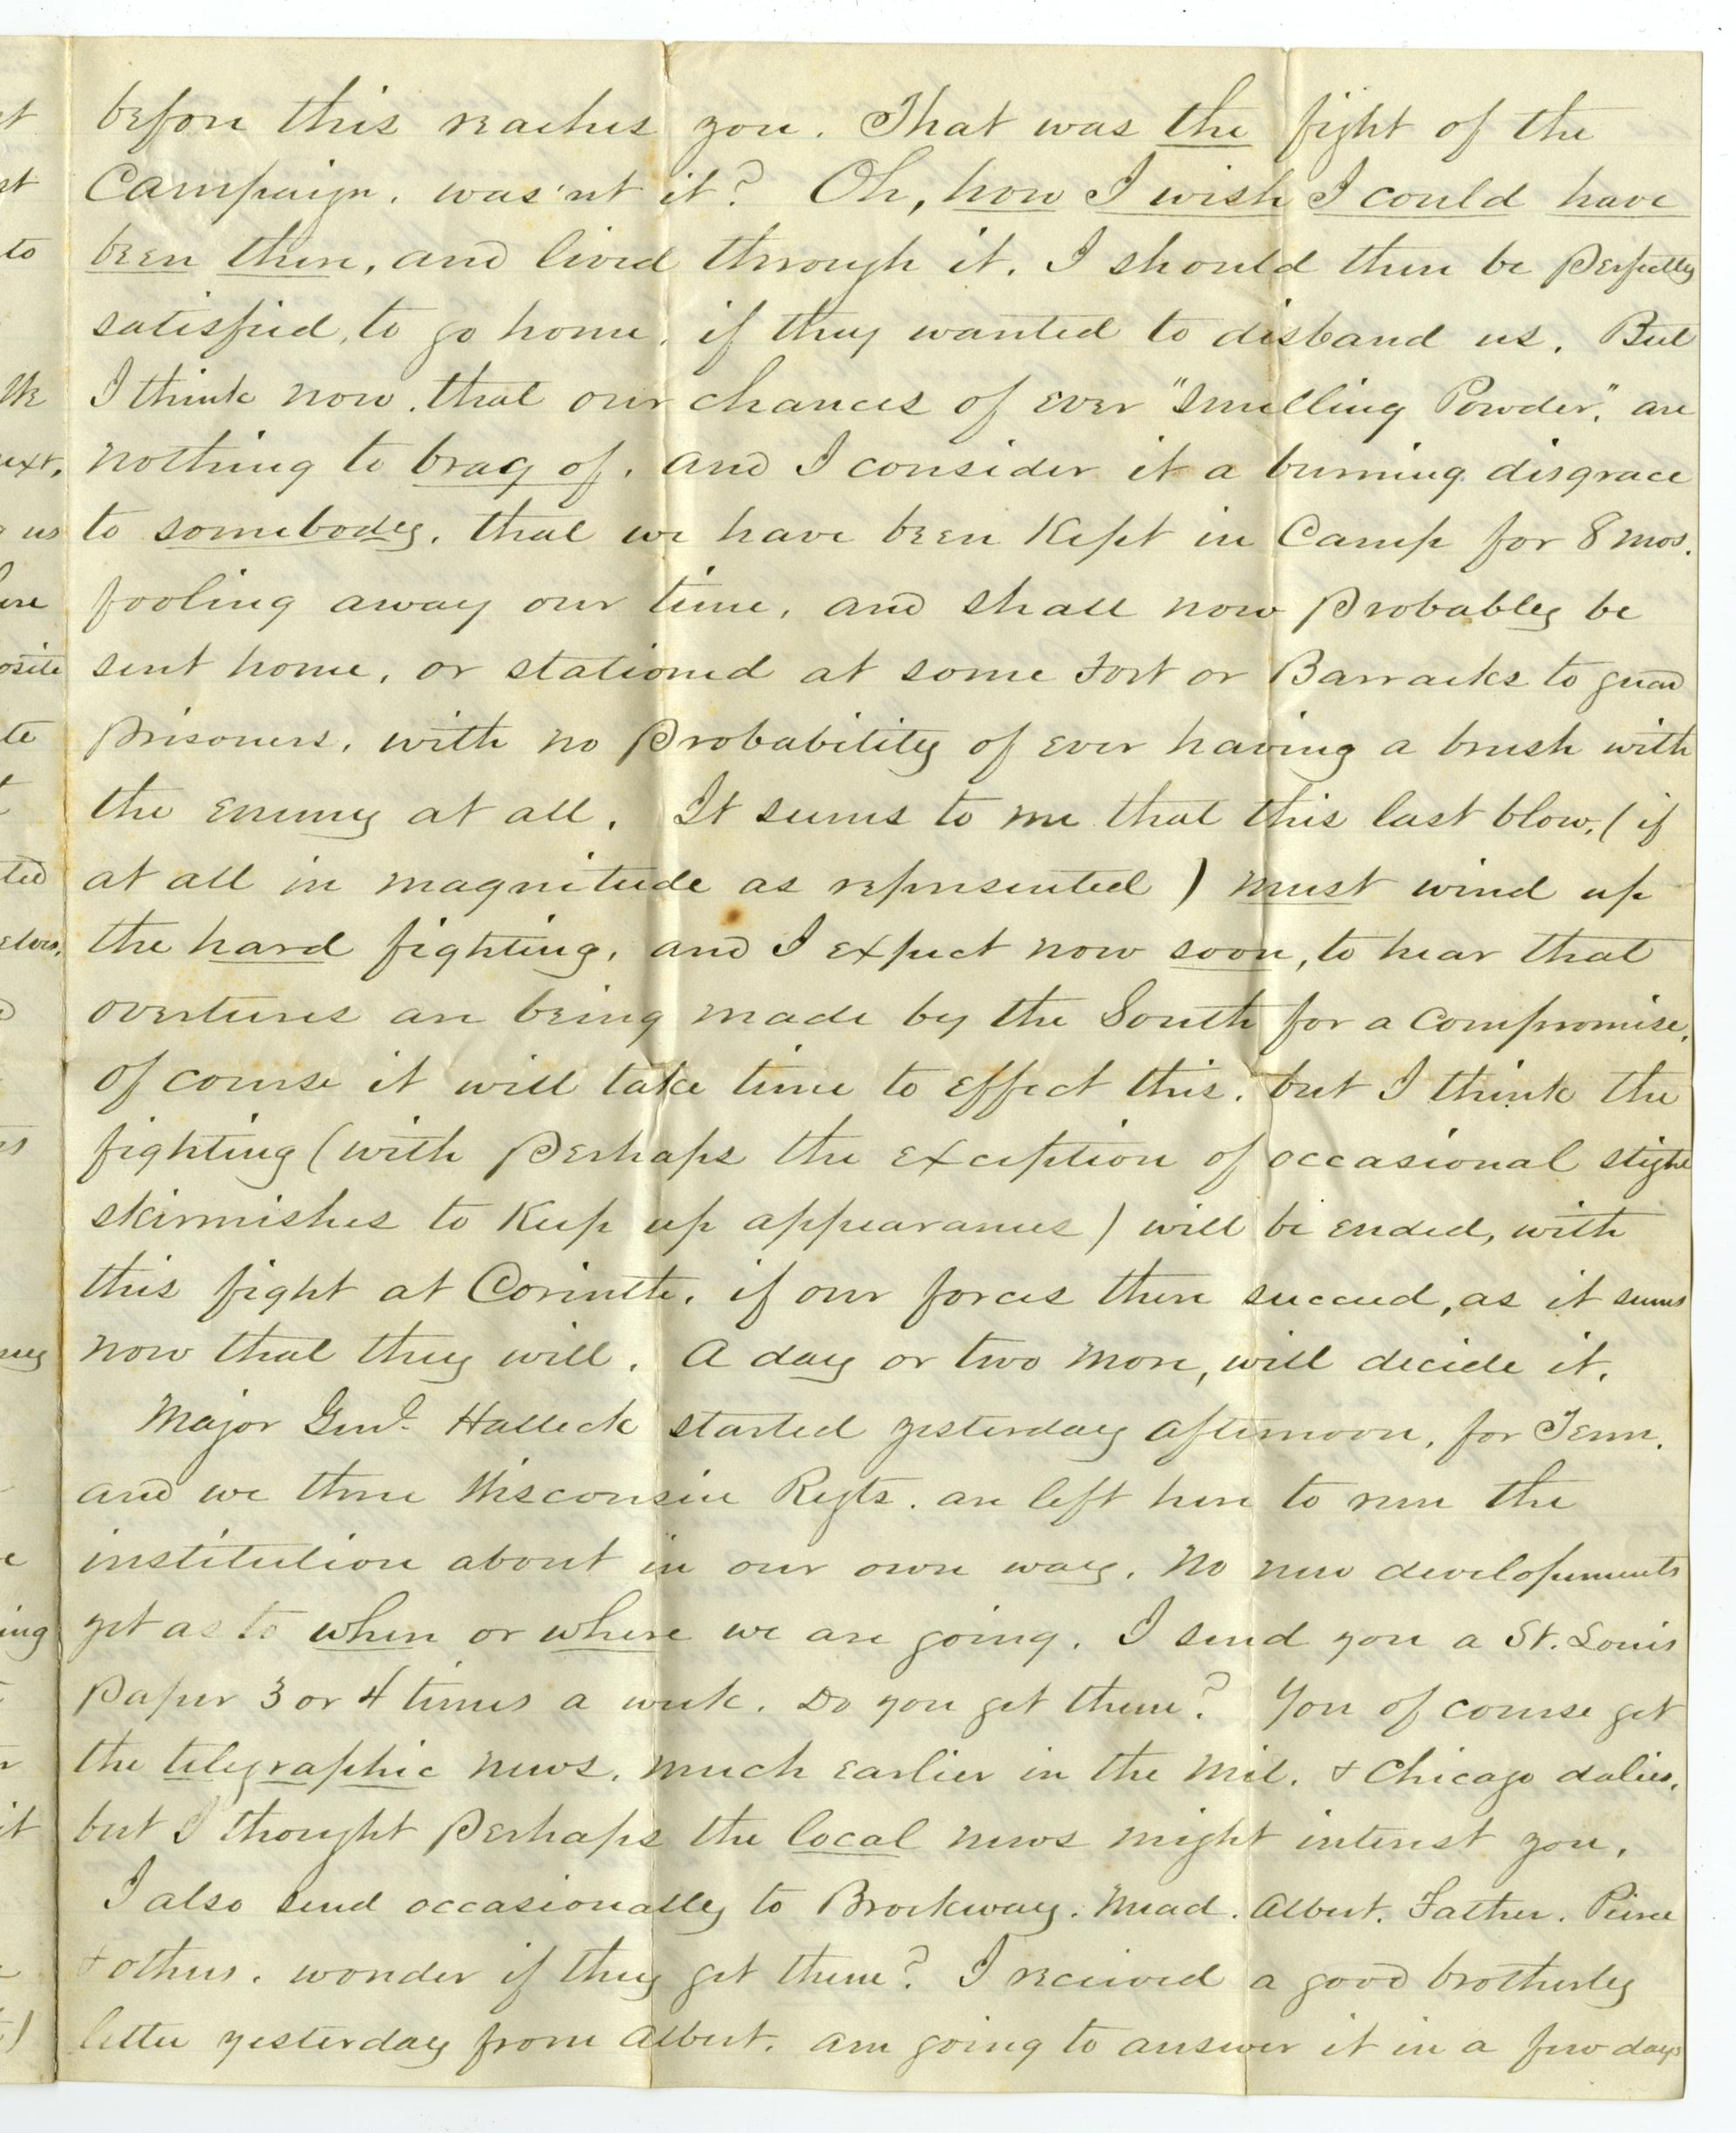 before this reaches you. That was the fight of the
Campaign. was'nt it? Oh, how I wish I could have
been there, and lived through it. I should then be perfectly
satisfied, to go home, if they wanted to disband us. But
I think now, that our chances of ever "smelling Powder," are
nothing to brag of, and I consider it a burning disgrace
to somebody, that we have been Kept in Camp for 8 mos.
fooling away our time, and shall now probably be
sent home, or stationed at some Fort or Barracks to guard
prisoners, with no probability of ever having a brush with
the Enemy at all. It seems to me that this last blow, (if
at all in magnitude as represented) must wind up
the hard fighting, and I expect now soon, to hear that
overtures are being made by the South for a compromise,
of course it will take time to effect this, but I think the
fighting (with perhaps the exception of occasional slight
skirmishes to Keep up appearances) will be ended, with
this fight at Corinth, if our forces there succeed, as it seems
now that they will. A day or two more, will decide it.
Major Genl. Halleck started yesterday afternoon, for Tenn.
and we three Wisconsin Regts. are left here to run the
institution about in our own way. No new developements
yet as to when or where we are going. I send you a St. Louis
paper 3 or 4 times a week. Do you get them? You of course get
the telegraphic news, much earlier in the Mil. & Chicago dalies,
but I thought perhaps the local news might interest you.
I also send occasionally to Brockway. Mead. Albert. Father. Peirce
& others. wonder if they get them? I received a good brotherly
letter yesterday from Albert. am going to answer it in a few days